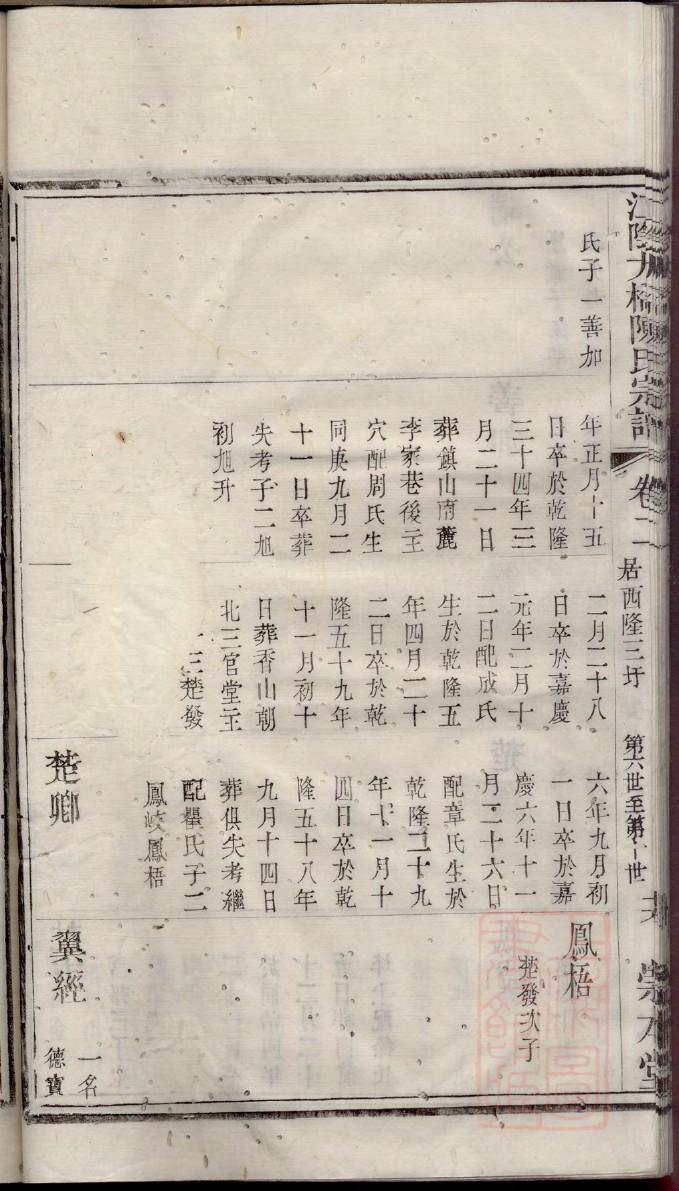 江陰九橋陳氏宗譜
卷二
居西隆三圩
第六世至第十世
崇本堂
氏子一善加
年正月十五
日卒於乾隆
三十四年三
月二十一日
葬鎮山南麓
李家巷後主
穴配周氏生
同庚九月二
十一日卒葬
失考子二旭
初旭升
二月二十八
日卒於嘉慶
元年二月十
二日配成氏
生於乾隆五
年四月二十
二日卒於乾
隆五十九年
十一月初十
日葬香山朝
北三官堂主
三楚發
楚卿
六年九月初
一日卒於嘉
慶六年十一
月二十六日
配章氏生於
乾隆二十九
年十一月十
四日卒於乾
隆五十八年
九月十四日
葬俱失考繼
配瞿氏子二
鳳岐鳳梧
鳳梧
楚發次子
翼經
一名
德寶